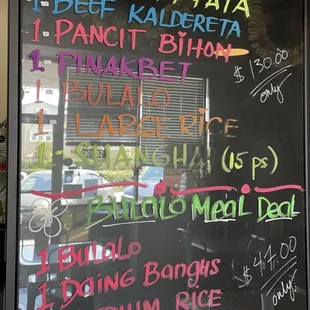 1 BEEF KALDERETA
1 PANCIT BIHON
1 PINAKBET
$130.00
only
1 BULALO
1 LARGE RICE
1 SHANGHAI (15 ps)
BULALO MEAL DEAL
1 BULALO
1 DAING BANGUS
$47.00
only
RICE